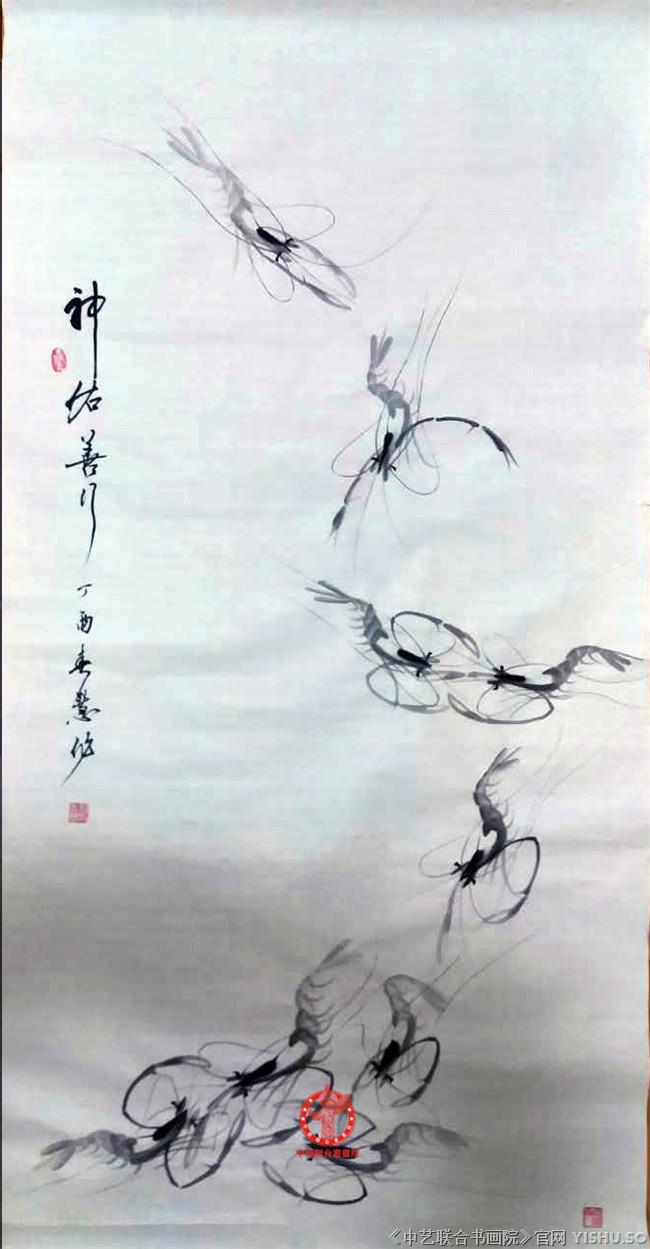 神佑善行
丁酉春慧作
中艺联合书画院
《中艺联合书画院》官网 YISHU.SO